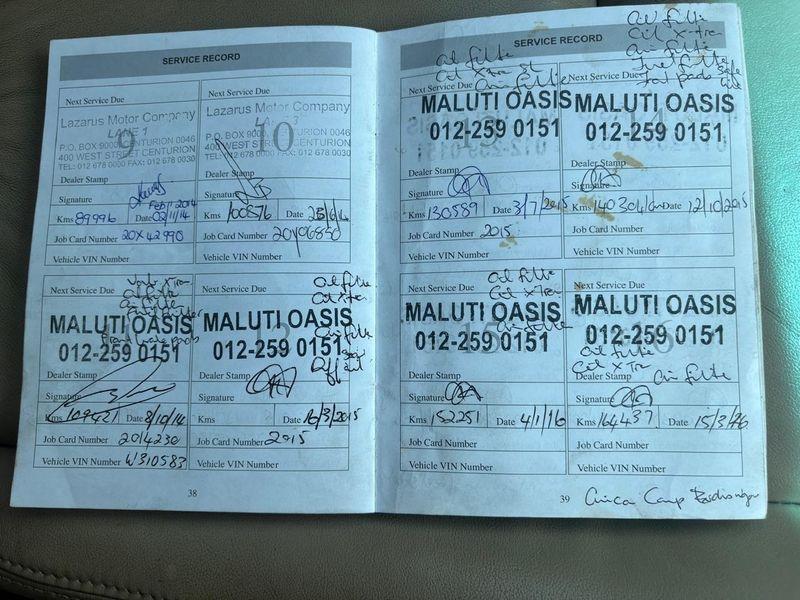 SERVICE RECORD
Next Service Due
Lazarus Motor Company
LANE 1
9
P.O. BOX 9000 CENTURION 0046
400 WEST STREET CENTURION
TEL: 012 678 0000 FAX: 012 678 0030
Dealer Stamp
Signature
Feb 11 2014
Kms 89996 Date 02/11/14
Job Card Number 20X42990
Vehicle VIN Number
Next Service Due
Lazarus Motor Company
10
P.O. BOX 9000, CENTURION 0046
400 WEST STREET CENTURION
TEL: 012 678 0000 FAX: 012 678 0030
Dealer Stamp
Signature
Kms 100876 Date
Job Card Number 20Y06850
Vehicle VIN Number
Next Service Due
Oil Filter
MALUTI OASIS
012-259 0151
Dealer Stamp
Signature
Kms 109421 Date 8/10/14
Job Card Number 2014230
Vehicle VIN Number W310583
Next Service Due
Oil filter
Air filter
MALUTI OASIS
012-259 0151
Dealer Stamp
Signature
Kms Date 16/3/2015
Job Card Number 2015
Vehicle VIN Number
38
SERVICE RECORD
Oil filter
Air filter
Next Service Due
MALUTI OASIS
012-259 0151
Dealer Stamp
Signature
Kms 130589 Date 3/7/2015
Job Card Number 2015
Vehicle VIN Number
Oil filter
Oil X-Tra
Air filter
Fuel filter
Next Service Due
MALUTI OASIS
012-259 0151
Dealer Stamp
Signature
Kms 140304 Date 12/10/2015
Job Card Number
Vehicle VIN Number
Next Service Due
Oil filter
Oil X Tra
Air filter
MALUTI OASIS
012-259 0151
15
Dealer Stamp
Signature
Kms 152251 Date 4/1/16
Job Card Number
Vehicle VIN Number
Next Service Due
MALUTI OASIS
012-259 0151
Oil filter
Oil X Tra
Dealer Stamp
Air filter
Signature
Kms 164437 Date 15/3/16
Job Card Number
Vehicle VIN Number
39